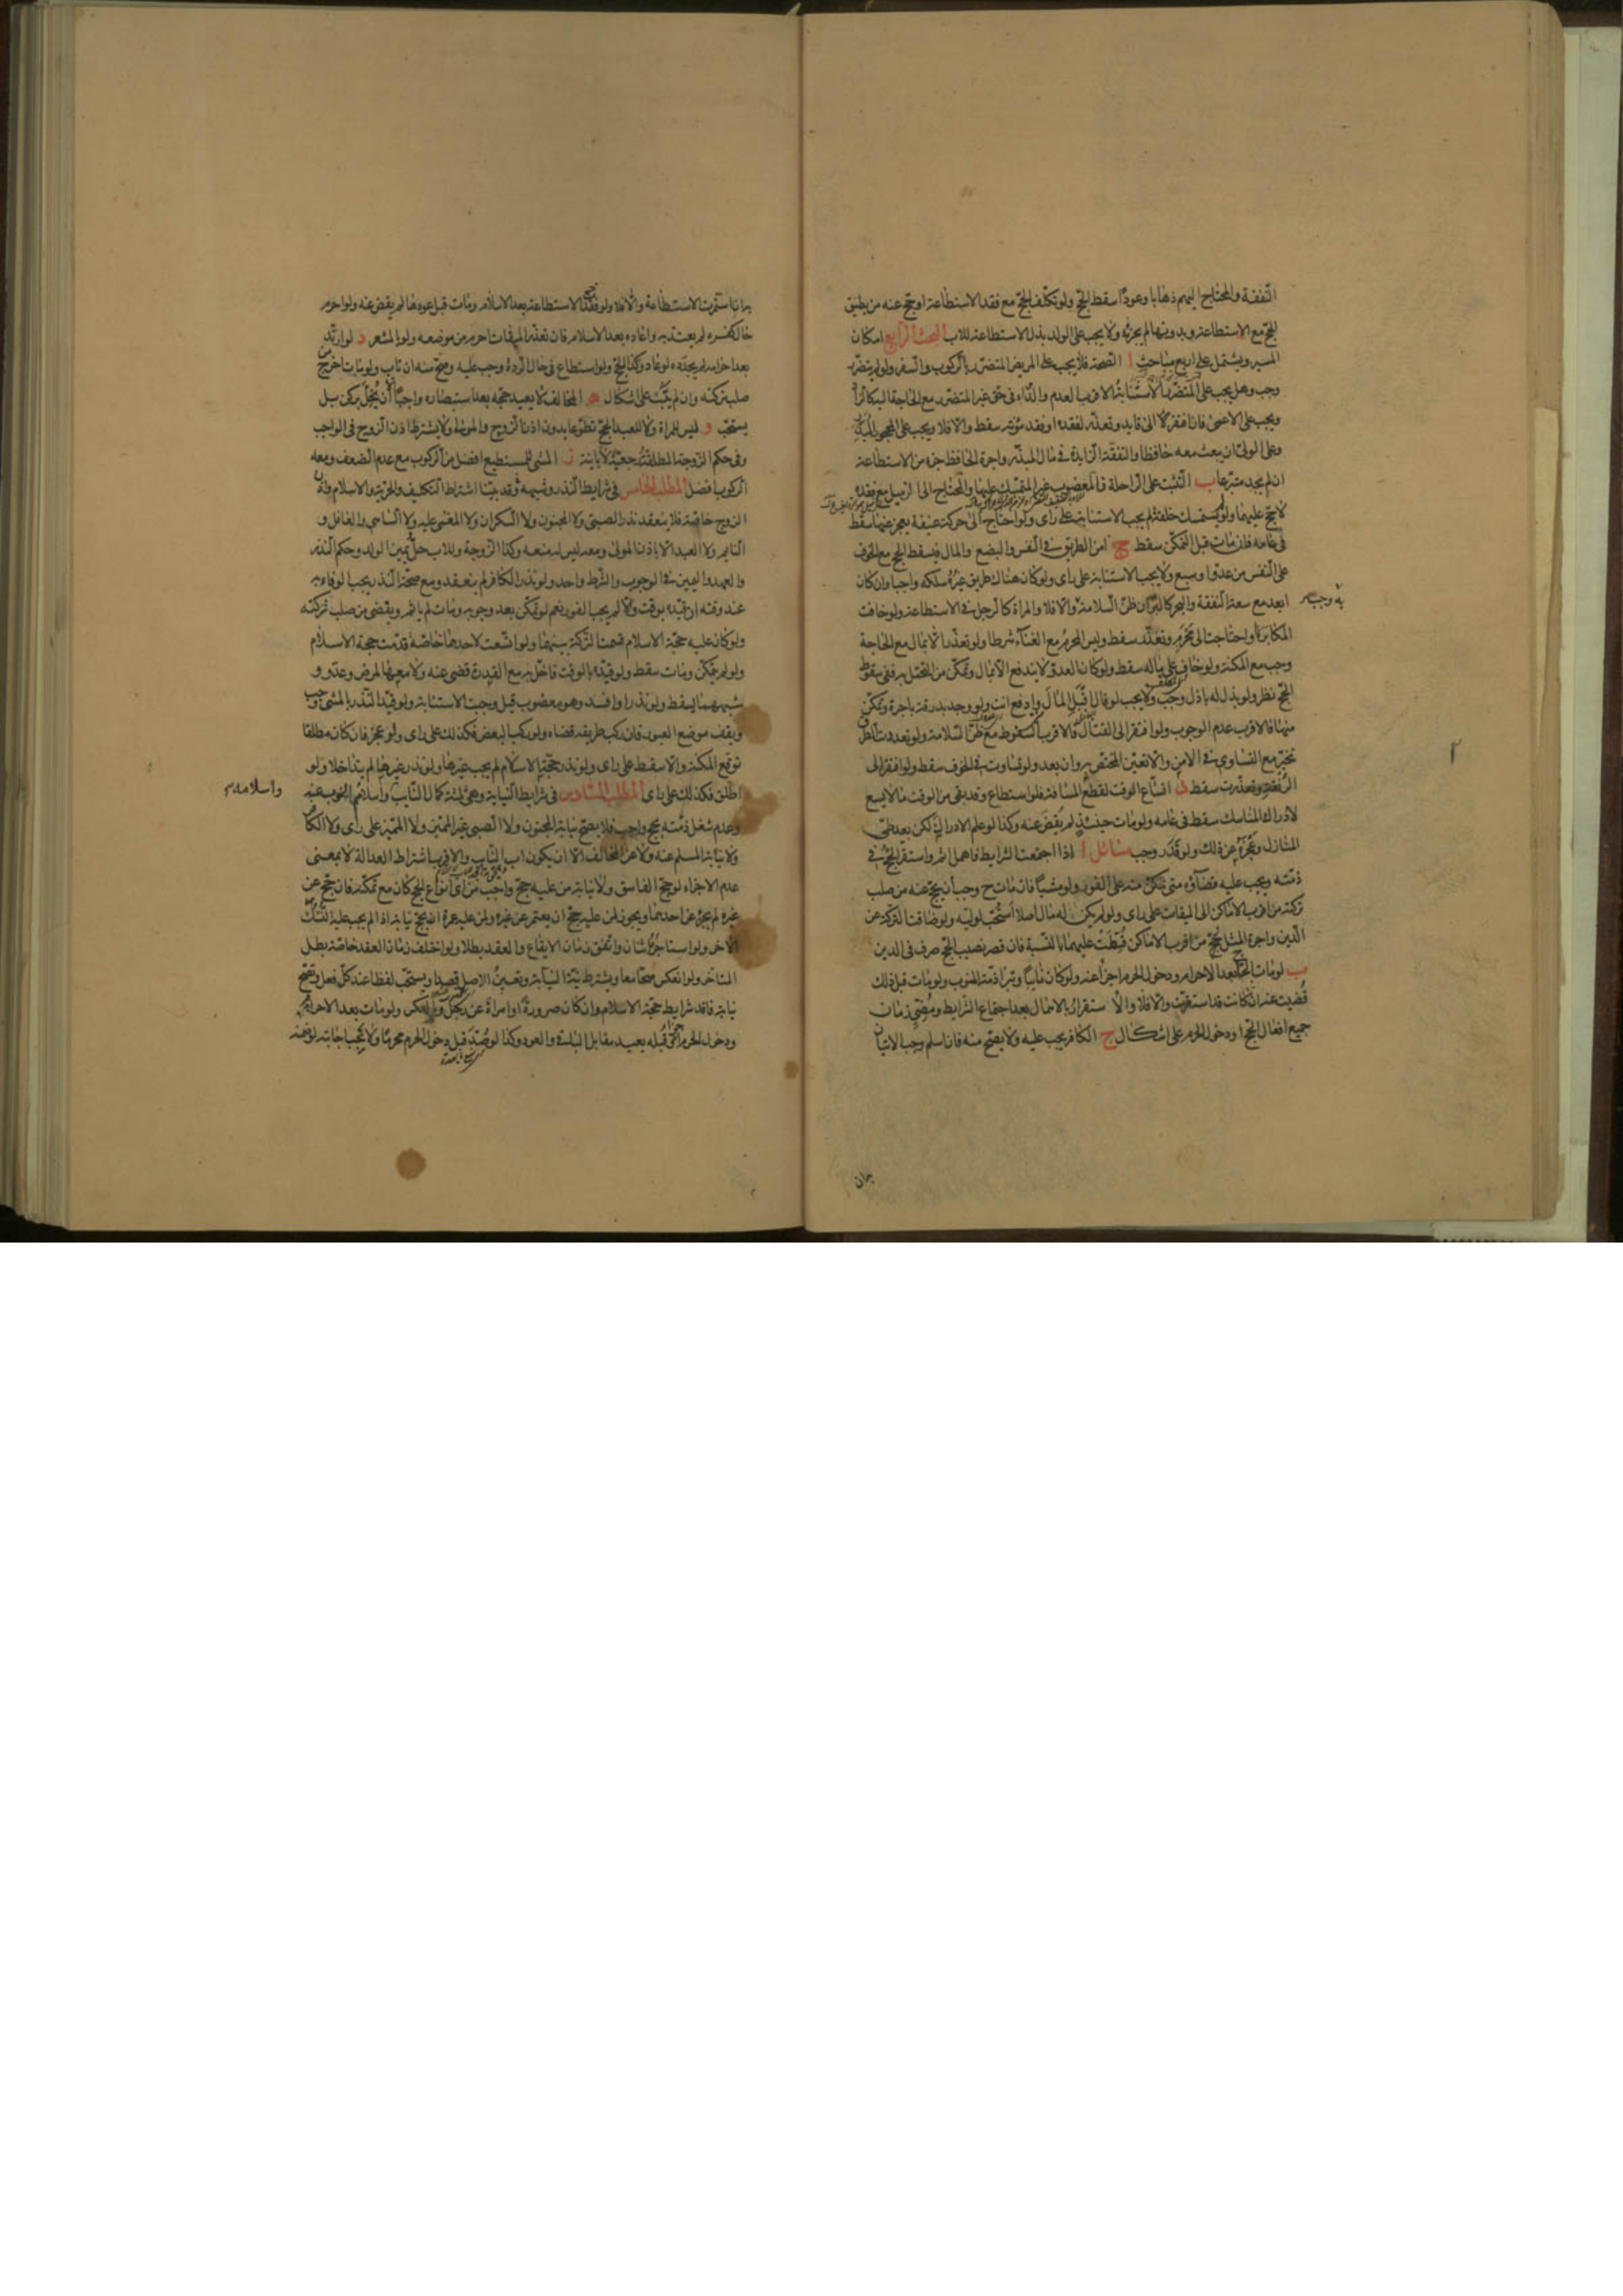 النفقة والمحتاج اليهم ذهابا وعودا سقط الحج ولو تكلف الحج مع فقد الاستطاعة او حج عنه من يطيق
الحج مع الاستطاعة وبدونها لم يجزئه ولا يجب على الولد بذل الاستطاعة للاب البحث الرابع امكان
المسير ويشتمل على اربع مباحث ا الصحة فلا يجب على المريض المتضرر بالركوب والسفر ولو لم يتضرر
وجب وهل يجب على المتضرر الاستنابة الاقرب العدم والدواء في حق غير المتضرر مع الحاجة اليه كالزاد
ويجب على الاعمى فان افتقر الى قايد وتعذر لفقده او فقد مؤنته سقط والا فلا ويجب على المحجور المبذر
وعلى الولي ان يبعث معه حافظا والنفقة الزايدة في مال المبذر واجرة الحافظ جزء من الاستطاعة
ان لم يجد متبرعا ب التثبت على الراحلة فالمعضوب غير المتمسك عليها والمحتاج الى الزميل مع فقده
لا حج عليهما ولو لم يستمسك خلقة لم يجب الاستنابة على راى ولو احتاج الى حركة عنيفة يعجز عنها سقط
في عامه فلو مات قبل التمكن سقط ج امن الطريق في النفس والبضع والمال فيسقط الحج مع الخوف
على النفس من عدو او سبع ولا يجب الاستنابة على راى ولو كان هناك طريق غيره سلكه واجبا وان كان
ابعد مع سعة النفقة والبحر كالبر ان ظن السلامة به وجب والا فلا والمراة كالرجل في الاستطاعة ولو خافت
المكابرة او احتاجت الى محرم وتعذر سقط وليس المحرم مع الغناء شرطا ولو تعذر الا بمال مع الحاجة
وجب مع المكنة ولو خاف على ماله سقط ولو كان العدو لا يندفع الا بمال وتمكن من التحمل به ففي سقوط
الحج نظر ولو بذل له باذل وجب ولا يجب لو قال اقبل المال وادفع انت ولو وجد بدرقة باجرة وتمكن
منها فالاقرب عدم الوجوب ولو افتقر الى القتال فالاقرب السقوط مع ظن السلامة ولو تعددت الطرق
تخير مع التساوي في الامن والا تعين المختص به وان بعد ولو تساوت في الخوف سقط ولو افتقر الى
الرفقة وتعذرت سقط د اتساع الوقت لقطع المسافة فلو استطاع وقد بقي من الوقت ما لا يسع
لادراك المناسك سقط في عامه ولو مات حينئذ لم يقض عنه وكذا لو علم الادراك لكن بعد طي
المنازل وعجزه عن ذلك ولو قدر وجب مسائل ا اذا اجتمعت الشرايط فاهمل اثم واستقر الحج في
ذمته ويجب عليه قضاؤه متى تمكن منه على الفور ولو مشيا فان مات ح وجب ان يحج عنه من صلب
تركته من اقرب الاماكن الى الميقات على راى ولو لم يكن له مال اصلا استحب لوليه ولو ضاقت التركة عن
الدين واجرة المثل للحج من اقرب الاماكن قسطت عليهما بالنسبة فان قصر نصيب الحج صرف في الدين
ب لو مات الحاج بعد الاحرام ودخول الحرم اجزأ عنه ولو كان نايبا وتبرأ ذمة المنوب ولو مات قبل ذلك
قضيت عنه ان كانت قد استقرت والا فلا والاستقرار بالاهمال بعد اجتماع الشرايط ومضى زمان
جميع افعال الحج او دخول الحرم على اشكال ج الكافر يجب عليه ولا يصح منه فان اسلم وجب الاتيان
به ان استمرت الاستطاعة والا فلا ولو فقد الاستطاعة بعد الاسلام ومات قبل عودها لم يقض عنه ولو احرم
حال كفره لم يعتد به واعاده بعد الاسلام فان تعذر الميقات احرم من موضعه ولو بالمشعر د لو ارتد
بعد احرامه لم يجدده لو عاد وكذا الحج ولو استطاع في حال الردة وجب عليه وصح منه ان تاب ولو مات اخرج من
صلب تركته وان لم يتب على اشكال ه المخالف لا يعيد حجه بعد استبصاره واجبا الا ان يخل بركن بل
يستحب و ليس للمراة ولا للعبد الحج تطوعا بدون اذن الزوج والمولى ولا يشترط اذن الزوج في الواجب
وفي حكم الزوجة المطلقة رجعية لا باينة ز المشى للمستطيع افضل من الركوب مع عدم الضعف ومعه
الركوب افضل المطلب الخامس في شرايط النذر وشبهه وقد بينا اشتراط التكليف والحرية والاسلام واذن
الزوج خاصة فلا ينعقد نذر الصبي ولا المجنون ولا السكران ولا المغمى عليه ولا الساهي والغافل و
النايم ولا العبد الا باذن المولى ومعه ليس له منعه وكذا الزوجة وللاب حل يمين الولد وحكم النذر
والعهد واليمين في الوجوب والشرط واحد ولو نذر الكافر لم ينعقد ومع صحة النذر يجب الوفاء به
عند وقته ان قيده بوقت والا لم يجب الفور نعم لو تمكن بعد وجوبه ومات لم ياثم ويقضى من صلب تركته
ولو كان عليه حجة الاسلام قسمت التركة بينهما ولو اتسعت لاحدهما خاصة قدمت حجة الاسلام
ولو لم يتمكن ومات سقط ولو قيده بالوقت فاخل به مع القدرة قضى عنه ولا معها لمرض وعدو و
شبههما يسقط ولو نذر او افسد وهو معضوب قيل وجبت الاستنابة ولو قيد النذر بالمشى وجب
ويقف موضع العبور فان ركب طريقه قضاه ولو ركب البعض فكذلك على راى ولو عجز فان كان مطلقا
توقع المكنة والا سقط على راى ولو نذر حجة الاسلام لم يجب غيرها ولو نذر غيرها لم يتداخلا ولو
اطلق فكذلك على راى المطلب السادس في شرايط النيابة وهي ثلثة كمال النايب واسلامه واسلام المنوب عنه
وعدم شغل ذمته بحج واجب فلا يصح نيابة المجنون ولا الصبي غير المميز ولا المميز على راى ولا الكافر
ولا نيابة المسلم عنه ولا عن المخالف الا ان يكون اب النايب والاقرب اشتراط العدالة لا بمعنى
عدم الاجزاء لو حج الفاسق ولا نيابة من عليه حج واجب من اى انواع الحج كان مع تمكنه فان حج عن
غيره لم يجز عن احدهما ويجوز لمن عليه حج ان يعتمر عن غيره ولمن عليه عمرة ان يحج نيابة اذا لم يجب عليه النسك
الاخر ولو استاجره اثنان واتفق زمان الايقاع والعقد بطلا ولو اختلف زمان العقد خاصة بطل
المتاخر ولو انعكس صحا معا ويشترط نية النيابة وتعيين الاصل قصدا ويستحب لفظا عند كل فعل وتصح
نيابة فاقد شرايط حجة الاسلام وان كان صرورة او امراة عن رجل وبالعكس ولو مات بعد الاحرام
ودخول الحرم اجزا وقبله يعيد مقابل الباقي والعود وكذا لو صد قبل دخول الحرم محرما ولا يجب اجابته لو ضمنه